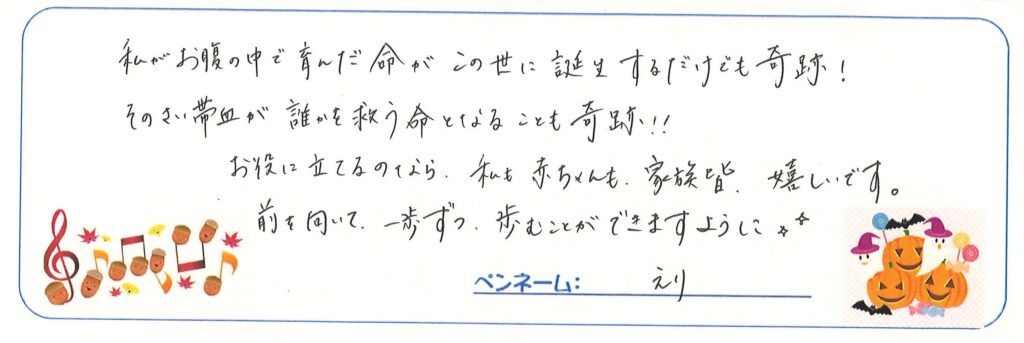 私がお腹の中で育んだ命がこの世に誕生するだけでも奇跡!
そのさい帯血が誰かを救う命となることも奇跡!!
お役に立てるのなら、私も赤ちゃんも、家族皆、嬉しいです。
前を向いて、一歩ずつ、歩むことができますように☆☆
ペンネーム: えり